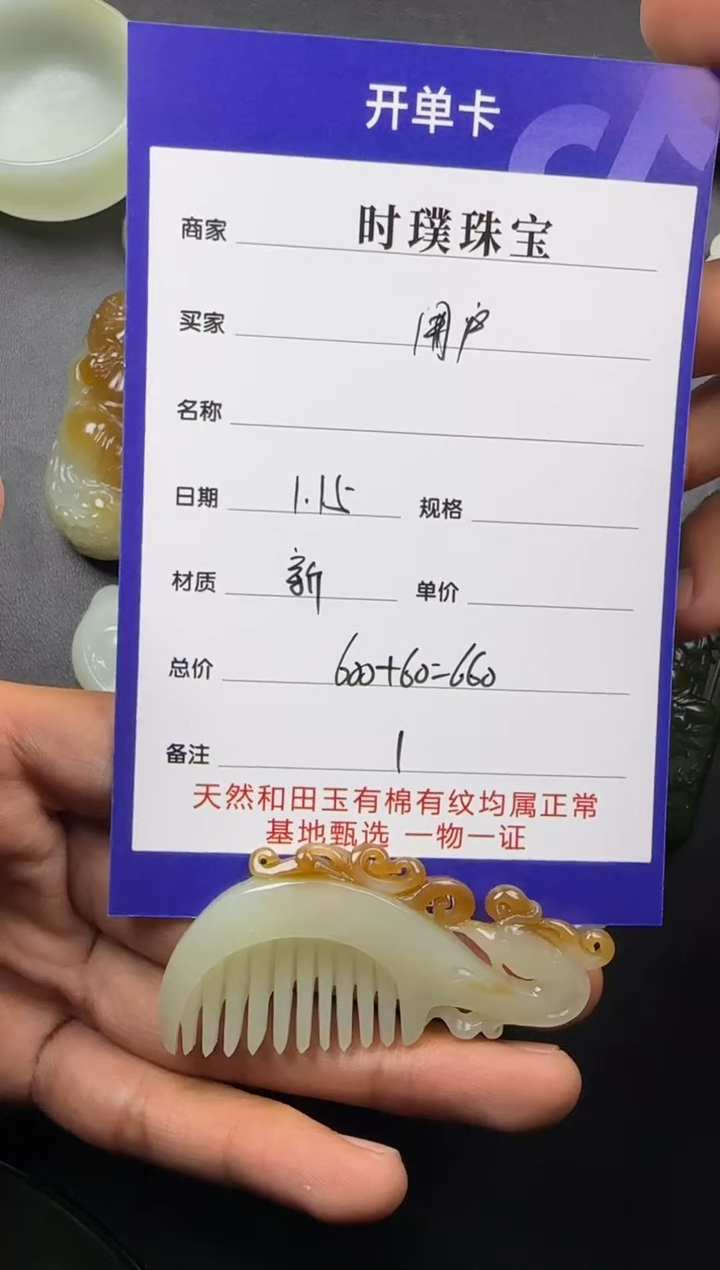 开单卡
商家 时璞珠宝
买家 用户
名称
日期 1.15 规格
材质 新 单价
总价 600+60=660
备注 1
天然和田玉有棉有纹均属正常
基地甄选 一物一证